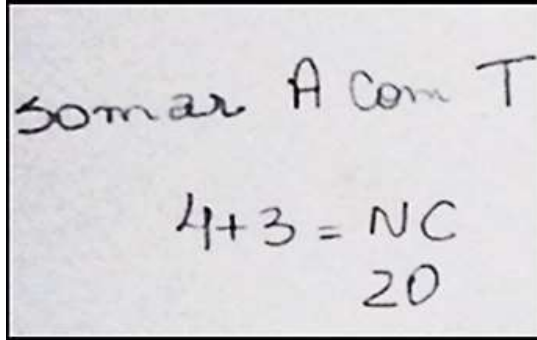 somar A com T
4+3 = NC
20